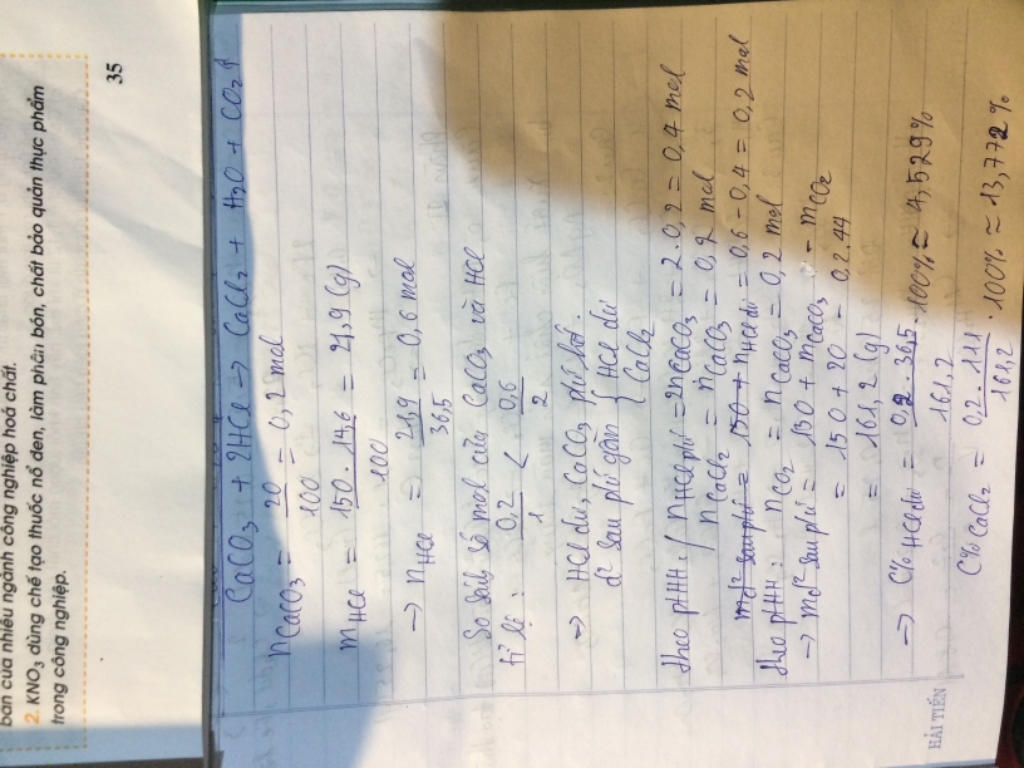 bản của nhiều ngành công nghiệp hoá chất.
2. KNO₃ dùng chế tạo thuốc nổ đen, làm phân bón, chất bảo quản thực phẩm
trong công nghiệp.
35
CaCO₃ + 2HCl → CaCl₂ + H₂O + CO₂↑
nCaCO₃ = 20/100 = 0,2 mol
mHCl = 150.14,6/100 = 21,9 (g)
→ nHCl = 21,9/36,5 = 0,6 mol
So sánh số mol của CaCO₃ và HCl
tỉ lệ : 0,2/1 < 0,6/2
⇒ HCl dư, CaCO₃ phứ hết.
d² sau phứ gồm { HCl dư
CaCl₂
theo pHH : { nHCl phứ = 2nCaCO₃ = 2.0,2 = 0,4 mol
nCaCl₂ = nCaCO₃ = 0,2 mol
md² sau phứ = 150 + nHCl dư = 0,6 - 0,4 = 0,2 mol
theo pHH : nCO₂ = nCaCO₃ = 0,2 mol
→ md² sau phứ = 150 + mCaCO₃ - mCO₂
= 150 + 20 - 0,2.44
= 161,2 (g)
→ C% HCl dư = 0,2.36,5/161,2 . 100% ≈ 4,529%
C% CaCl₂ = 0,2.111/161,2 . 100% ≈ 13,772%
HẢI TIẾN